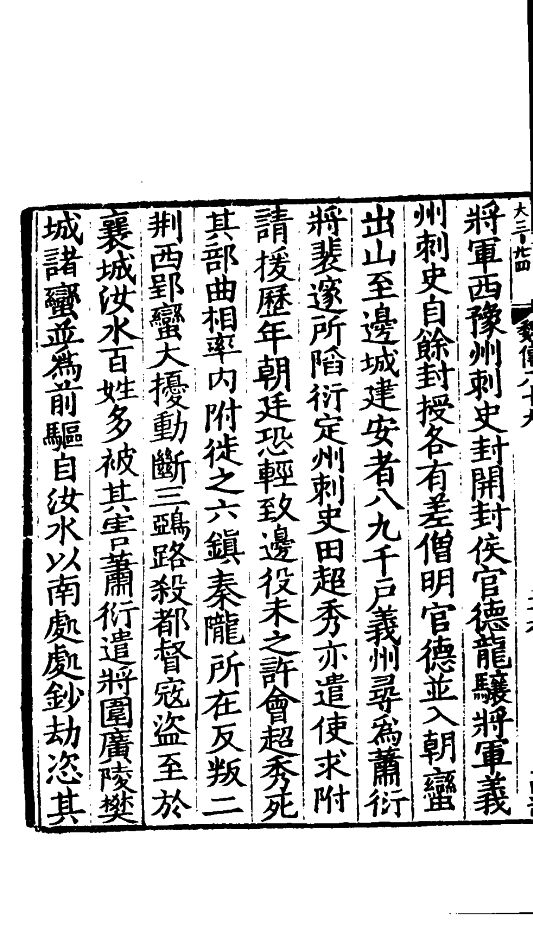 大三十廿四
魏傳八十九
將軍西豫州刺史封開封侯官德龍驤將軍義
州刺史自餘封授各有差僧明官德並入朝蠻
出山至邊城建安者八九千戶義州尋爲蕭衍
將裴邃所陷衍定州刺史田超秀亦遣使求附
請援歷年朝廷恐輕致邊役未之許會超秀死
其部曲相率内附徙之六鎮秦隴所在反叛二
荆西郢蠻大擾動斷三鵶路殺都督寇盜至於
襄城汝水百姓多被其害蕭衍遣將圍廣陵樊
城諸蠻並爲前驅自汝水以南處處鈔劫恣其